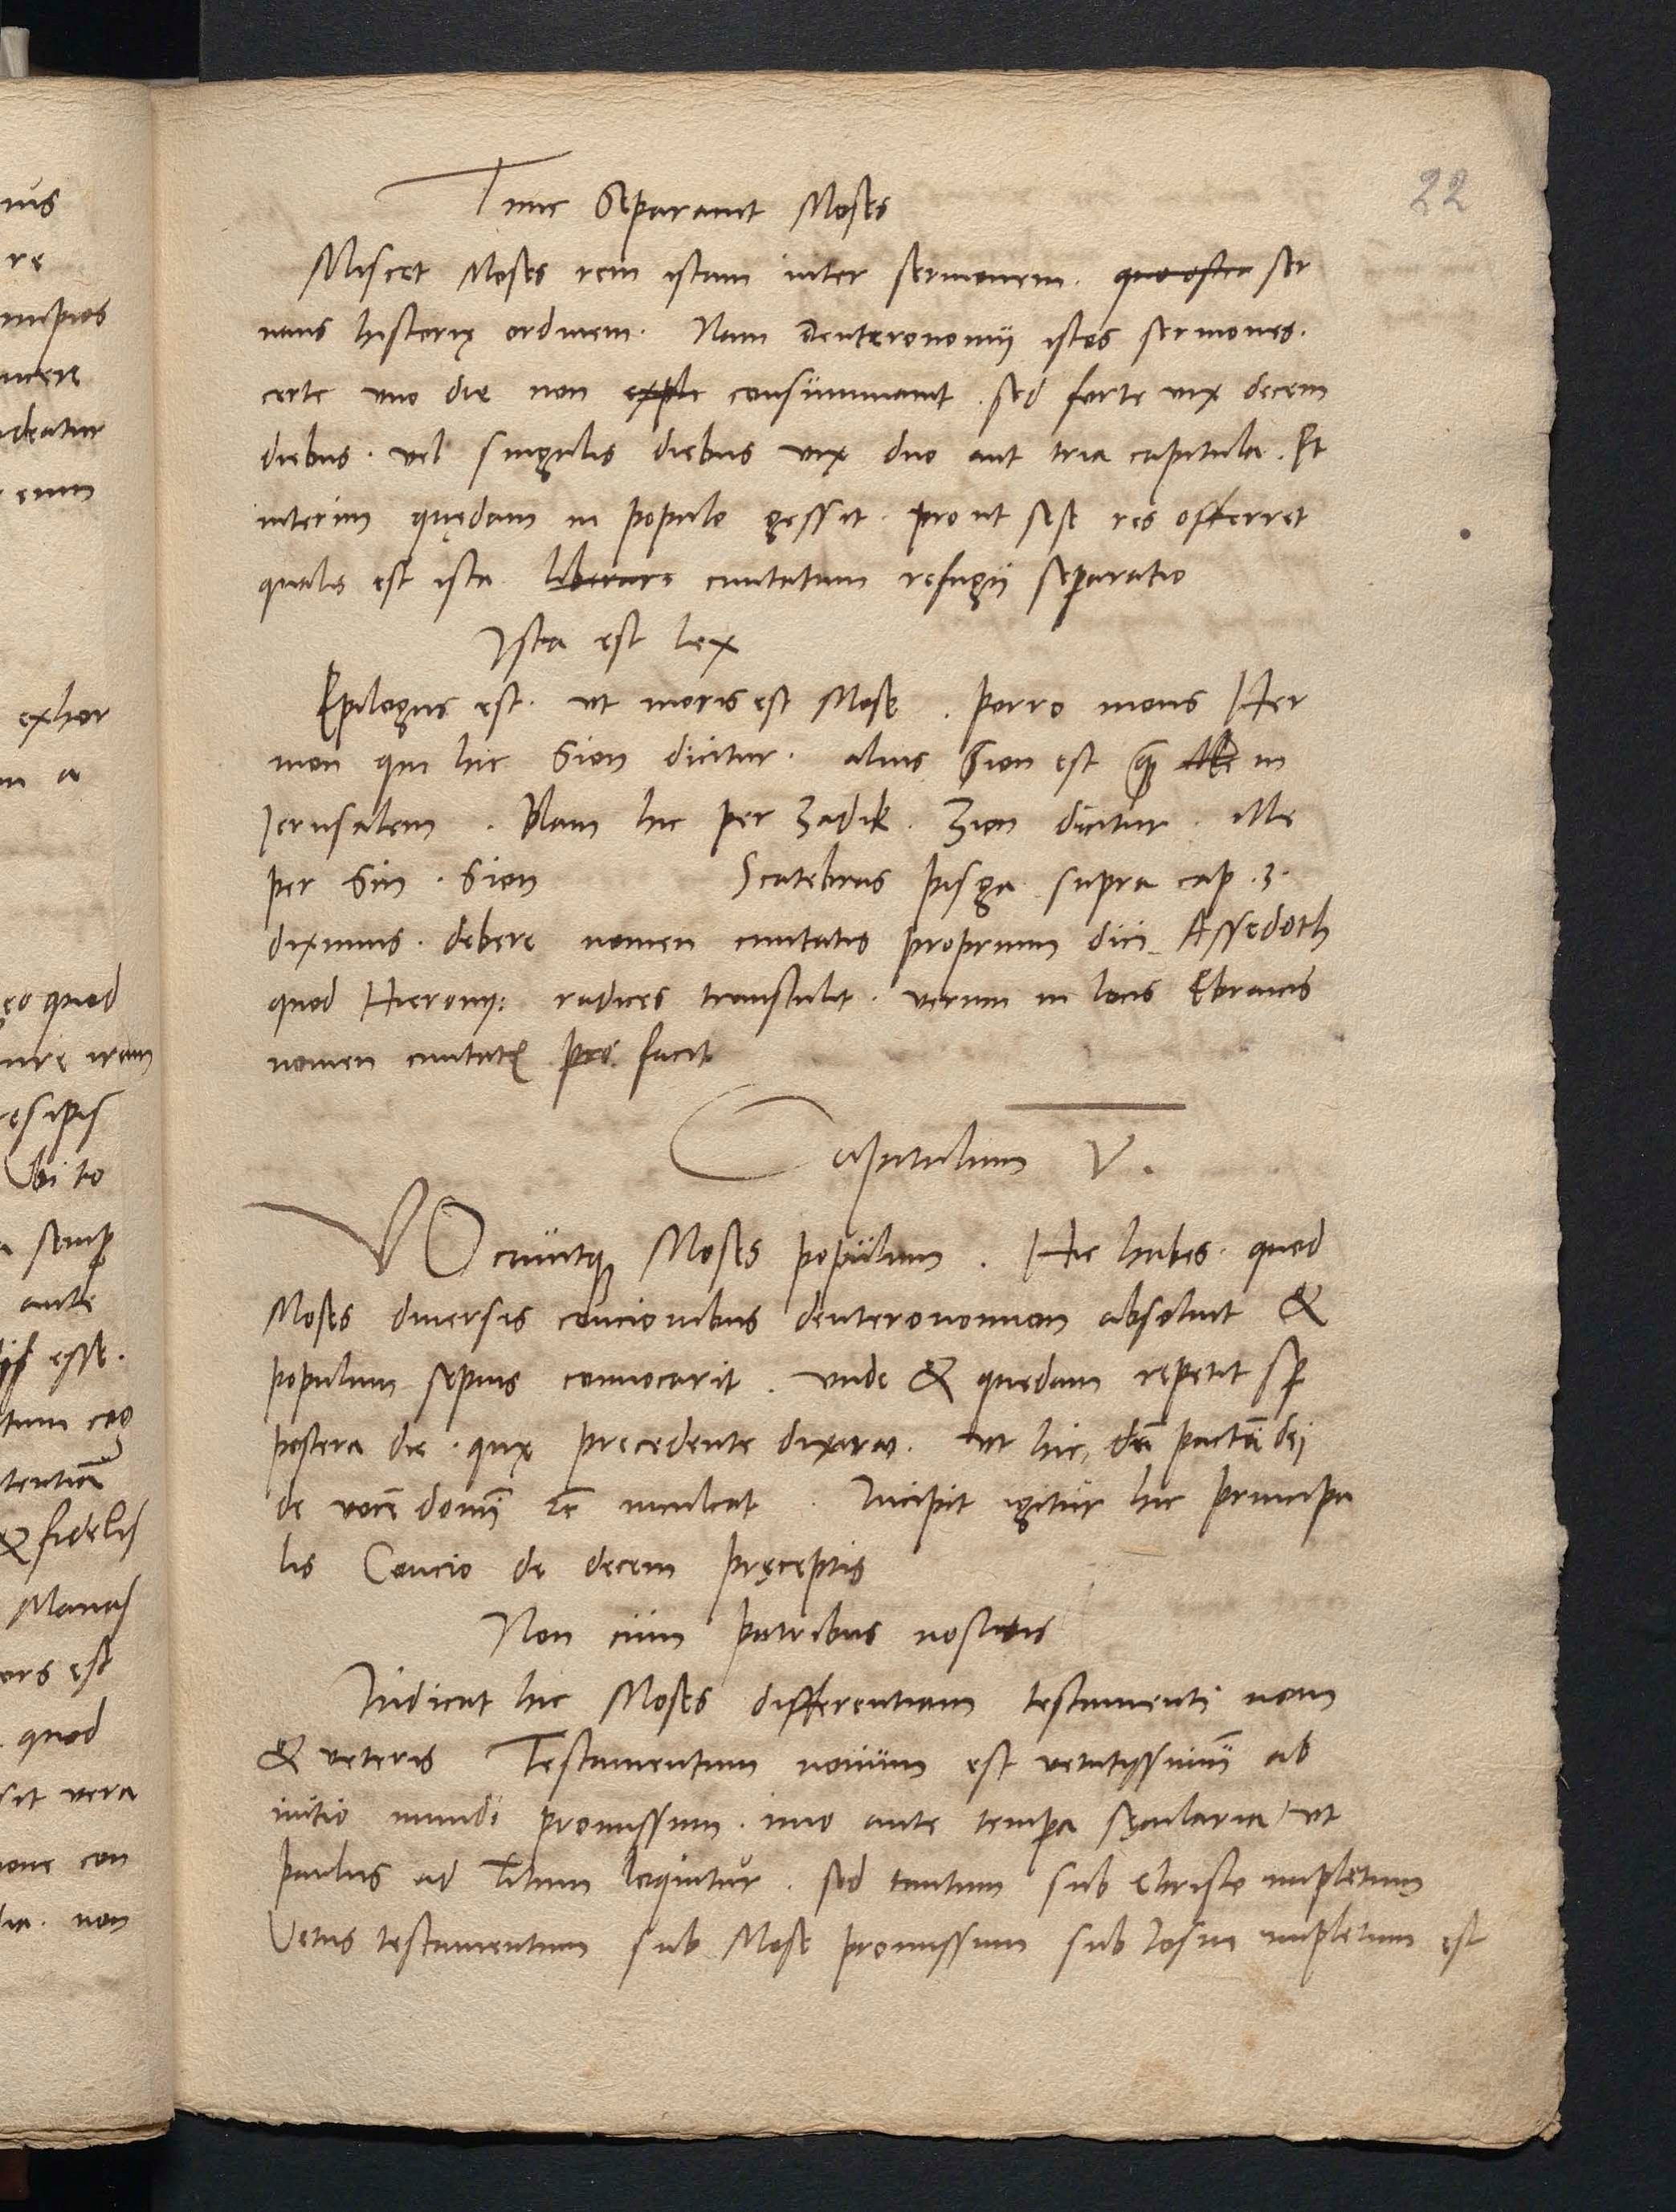 22
Tunc Separauit Moses
Miscet Moses rem istam inter sermonem. ser
uans historię ordinem. Nam Deuteronomij istos sermones.
certe vno die non expli consummauit. sed forte vix decem
diebus. vel singulis diebus vix duo aut tria capitula. Et
interim quędam in populo gessit. prout sese res offerret
qualis est ista liberare ciuitatum refugij separatio
Ista est lex
Epilogus est. vt moris est Mose. Porro mons Her
mon qui hic Sion dicitur. alius Sion est in
Ierusalem. Nam hic per Zadik. Zion dicitur. ille
per Sin. Sion Scatebras pisga supra cap. 3.
diximus. debere nomen ciuitatis proprium dici Assedoth
quod Hierony: radices transtulit. verum in locis Ebraicis
nomen facit
Capitulum V.
VOcauitq Moses populum. Hic habes. quod
Moses diuersis concionibus deuteronomion absoluit &
populum sepius conuocarit. vnde & quedam repetit sp
postera die. quę precedente dixerat. vt hic, pactũ dei
de vocẽ domĩ inculcat. Incipit igitur hic principa
lis Concio de decem pręceptis
Non cum patribus nostris
Indicat hic Moses differentiam testamenti noui
& veteris Testamentum nouum est vetutissimũ ab
initio mundi promissum. imo ante tempa sęcularia, vt
paulus ad Titum loquitur. sed tantum sub Christo impletum
Vetus testamentum sub Mose promissum sub Iosua impletum est